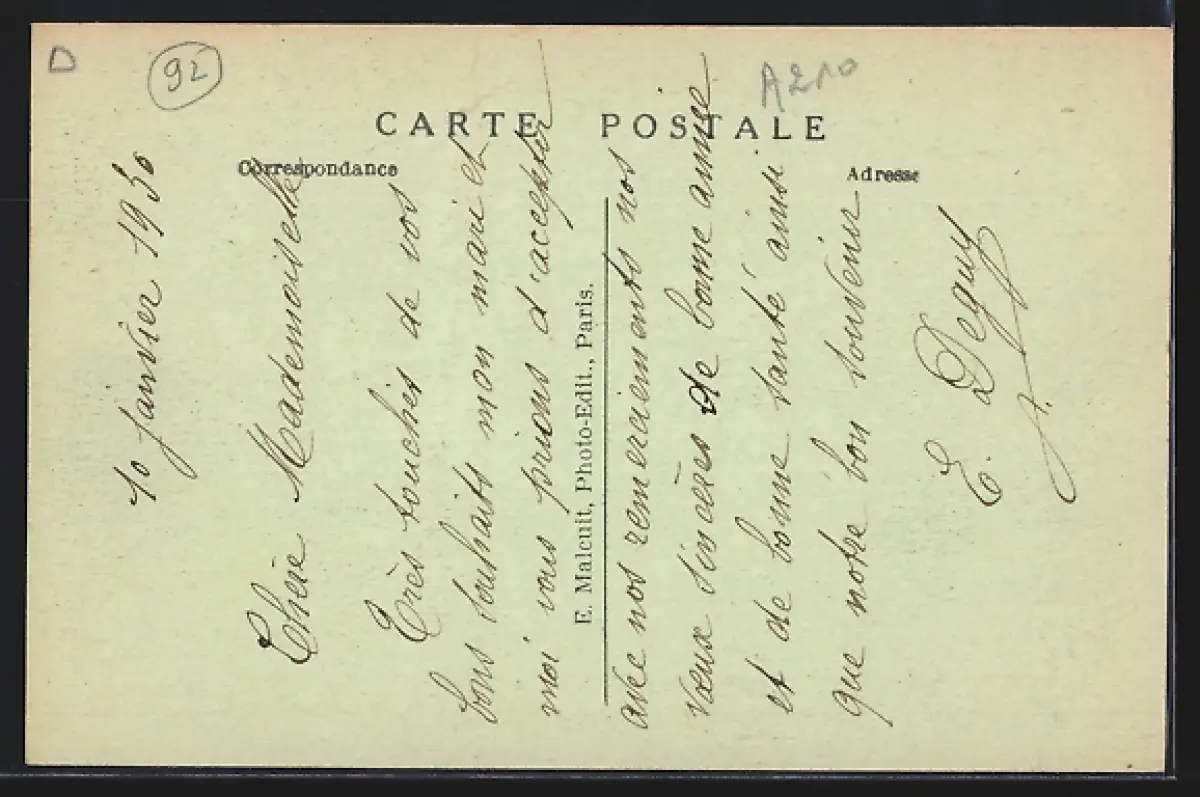 D
92
A210
CARTE POSTALE
Correspondance
Adresse
E. Malcuit, Photo-Edit., Paris.
10 janvier 1930
Chère Mademoiselle
Très touchés de vos
bons souhaits mon mari et
moi vous prions d'accepter
avec nos remerciements nos
vœux sincères de bonne année
et de bonne santé ainsi
que notre bon souvenir
E.